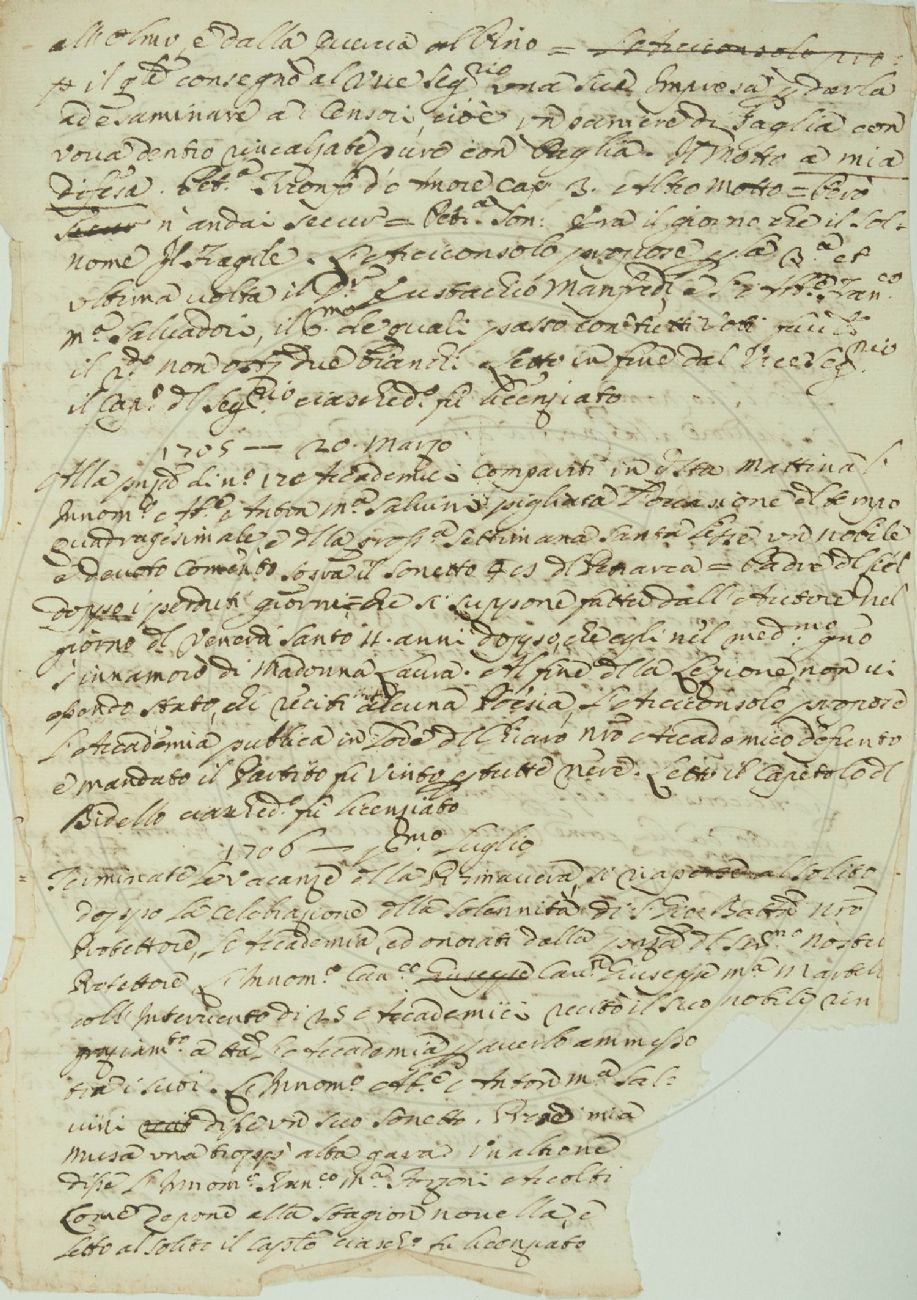 all'olmo, e dalla Quercia al Pino = L'Arciconsolo pro:
il qle consegnò al Vice Segrio una sua Impresa p darla
ad esaminare a i Censori, cioè un paniere di Paglia con
uoua dentro rincalzate pure con Paglia. Il Motto a mia
difesa. Petra Trionfo d'Amore Cap 3. Altro Motto = Però
secur n'andai secur = Petra Son: Era il giorno che il Sol.
nome Il Fragile. L'Arciconsolo propose p la 3a et
ultima uolta il Dr Eustachio Manfredi, e il Sr Abe Franco
Ma Saluadori, il pmo de quali passò con tutti uoti fau:li
il 2do non ost due bianchi. Letto in fine dal Vice Segrio
il Capo dl Segrio ciaschedo fu licenziato
1705 — 20. Marzo
Alla pnza di no 17 Accademici compariti in qsta mattina l'
Innomo Abe Anton Ma Saluini pigliata l'occasione del tempo
quadragesimale, e dlla prossa Settimana Santa lesse un nobile
e deuoto Comento sopra il Sonetto 48 dl Petrarca = Padre dl Ciel
doppo i perduti giorni = che si suppone fatto dall'Autore nel
giorno dl Venerdì Santo 11. anni doppo, che egli nel medmo gno
s'innamorò di Madonna Laura. Al fine dlla Lezione, non ui
essendo stato, chi reciti alcuna Poesia, L'Arciconsolo propose
l'Accademia publica in lode dl Chiaro nro Accademico defunto
e mandato il Partito fu uinto p tutte nere. Letto il Capitolo dl
Bidello ciaschedo fu licenziato
1706 — pmo Luglio
Terminate le Vacanze dlla Primauera, si riaperse al solito
doppo la celebrazione dlla solennità di S. Gio: Batta nro
Protettore, l'Accademia, ed onorati dalla pnza dl Sermo nostro
Protettore L'Innomo Cauro Giuseppe Caur Giuseppe Ma Martelli
coll'Interuento di 25 Accademici recitò il suo nobile rin
graziamto a tta l'Accademia, p auerlo ammesso
tra i suoi. L'Innomo Abe Anton Ma Sal
uini recit disse un suo Sonetto. Prende mia
musa una troppo alta gara. Un altro ne
disse l'Innomo Franco Ma Forzoni Accolti
Come depone alla stagion nouella, e
letto al solito il Caplo ciascho fu licenziato